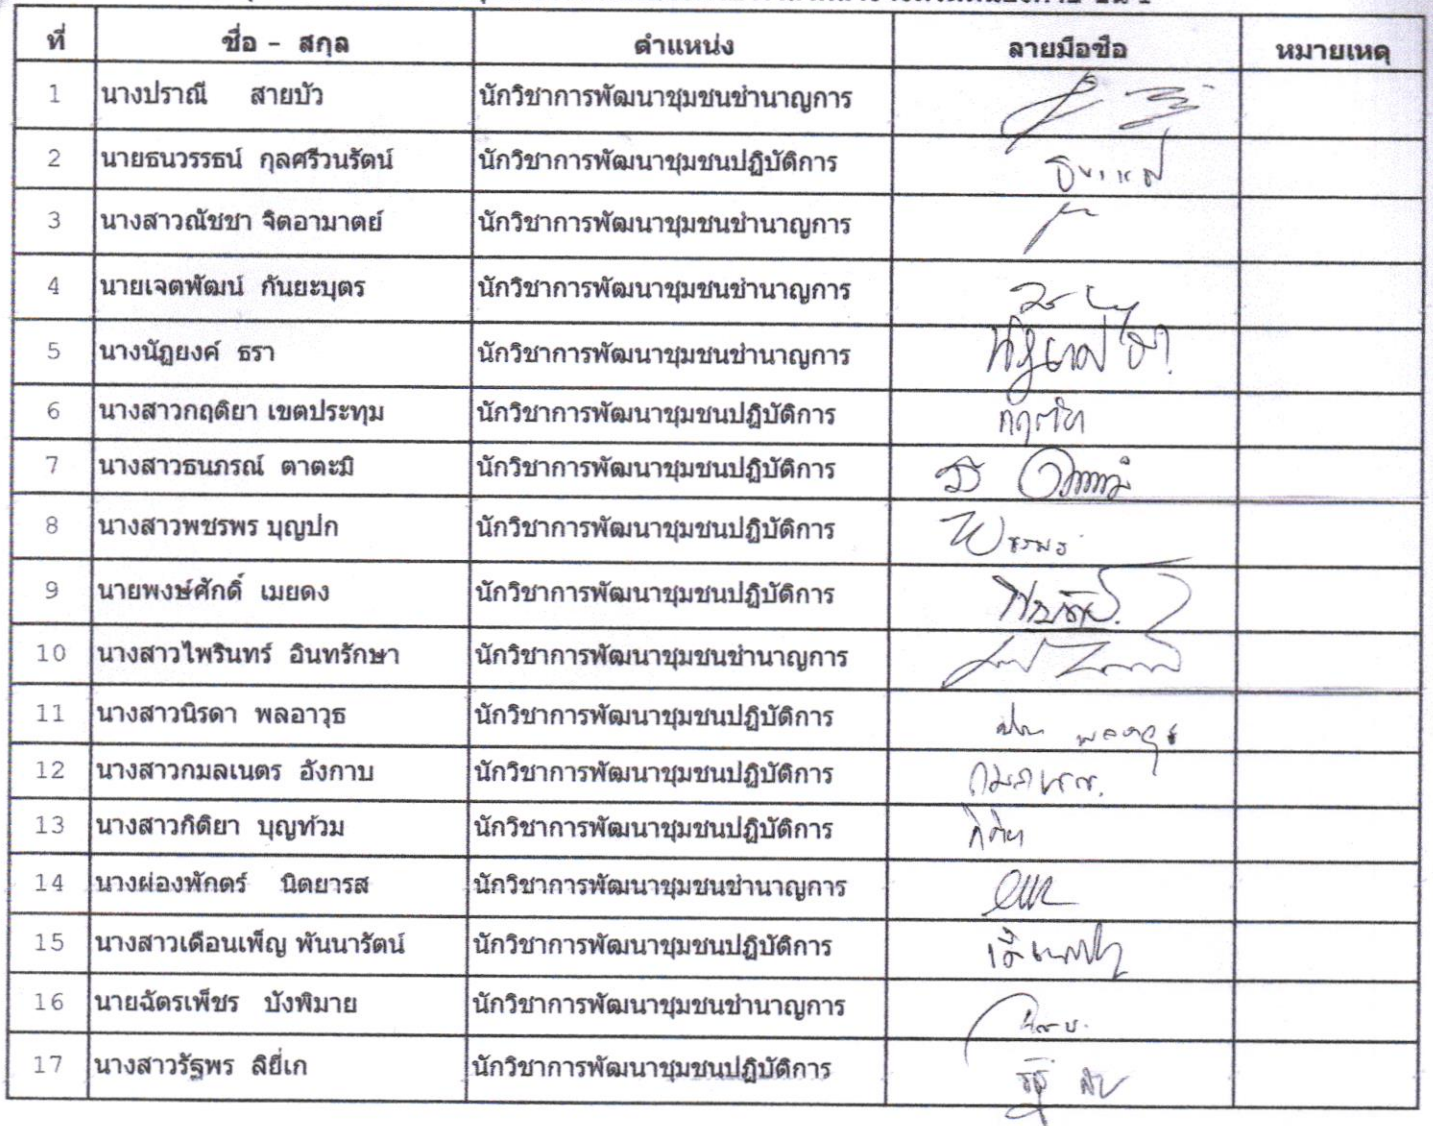 ที่ ชื่อ - สกุล ตำแหน่ง ลายมือชื่อ หมายเหตุ
1 นางปราณี สายบัว นักวิชาการพัฒนาชุมชนชำนาญการ
2 นายธนวรรธน์ กุลศรีวนรัตน์ นักวิชาการพัฒนาชุมชนปฏิบัติการ
3 นางสาวณัชชา จิตอามาตย์ นักวิชาการพัฒนาชุมชนชำนาญการ
4 นายเจตพัฒน์ กันยะบุตร นักวิชาการพัฒนาชุมชนชำนาญการ
5 นางนัฏยงค์ ธรา นักวิชาการพัฒนาชุมชนชำนาญการ
6 นางสาวกฤติยา เขตประทุม นักวิชาการพัฒนาชุมชนปฏิบัติการ
7 นางสาวธนภรณ์ ตาตะมิ นักวิชาการพัฒนาชุมชนปฏิบัติการ
8 นางสาวพชรพร บุญปก นักวิชาการพัฒนาชุมชนปฏิบัติการ
9 นายพงษ์ศักดิ์ เมยดง นักวิชาการพัฒนาชุมชนปฏิบัติการ
10 นางสาวไพรินทร์ อินทรักษา นักวิชาการพัฒนาชุมชนชำนาญการ
11 นางสาวนิรดา พลอาวุธ นักวิชาการพัฒนาชุมชนปฏิบัติการ
12 นางสาวกมลเนตร อังกาบ นักวิชาการพัฒนาชุมชนปฏิบัติการ
13 นางสาวกิติยา บุญท้วม นักวิชาการพัฒนาชุมชนปฏิบัติการ
14 นางผ่องพักตร์ นิตยารส นักวิชาการพัฒนาชุมชนชำนาญการ
15 นางสาวเดือนเพ็ญ พันนารัตน์ นักวิชาการพัฒนาชุมชนปฏิบัติการ
16 นายฉัตรเพ็ชร บังพิมาย นักวิชาการพัฒนาชุมชนชำนาญการ
17 นางสาวรัฐพร ลิยี่เก นักวิชาการพัฒนาชุมชนปฏิบัติการ